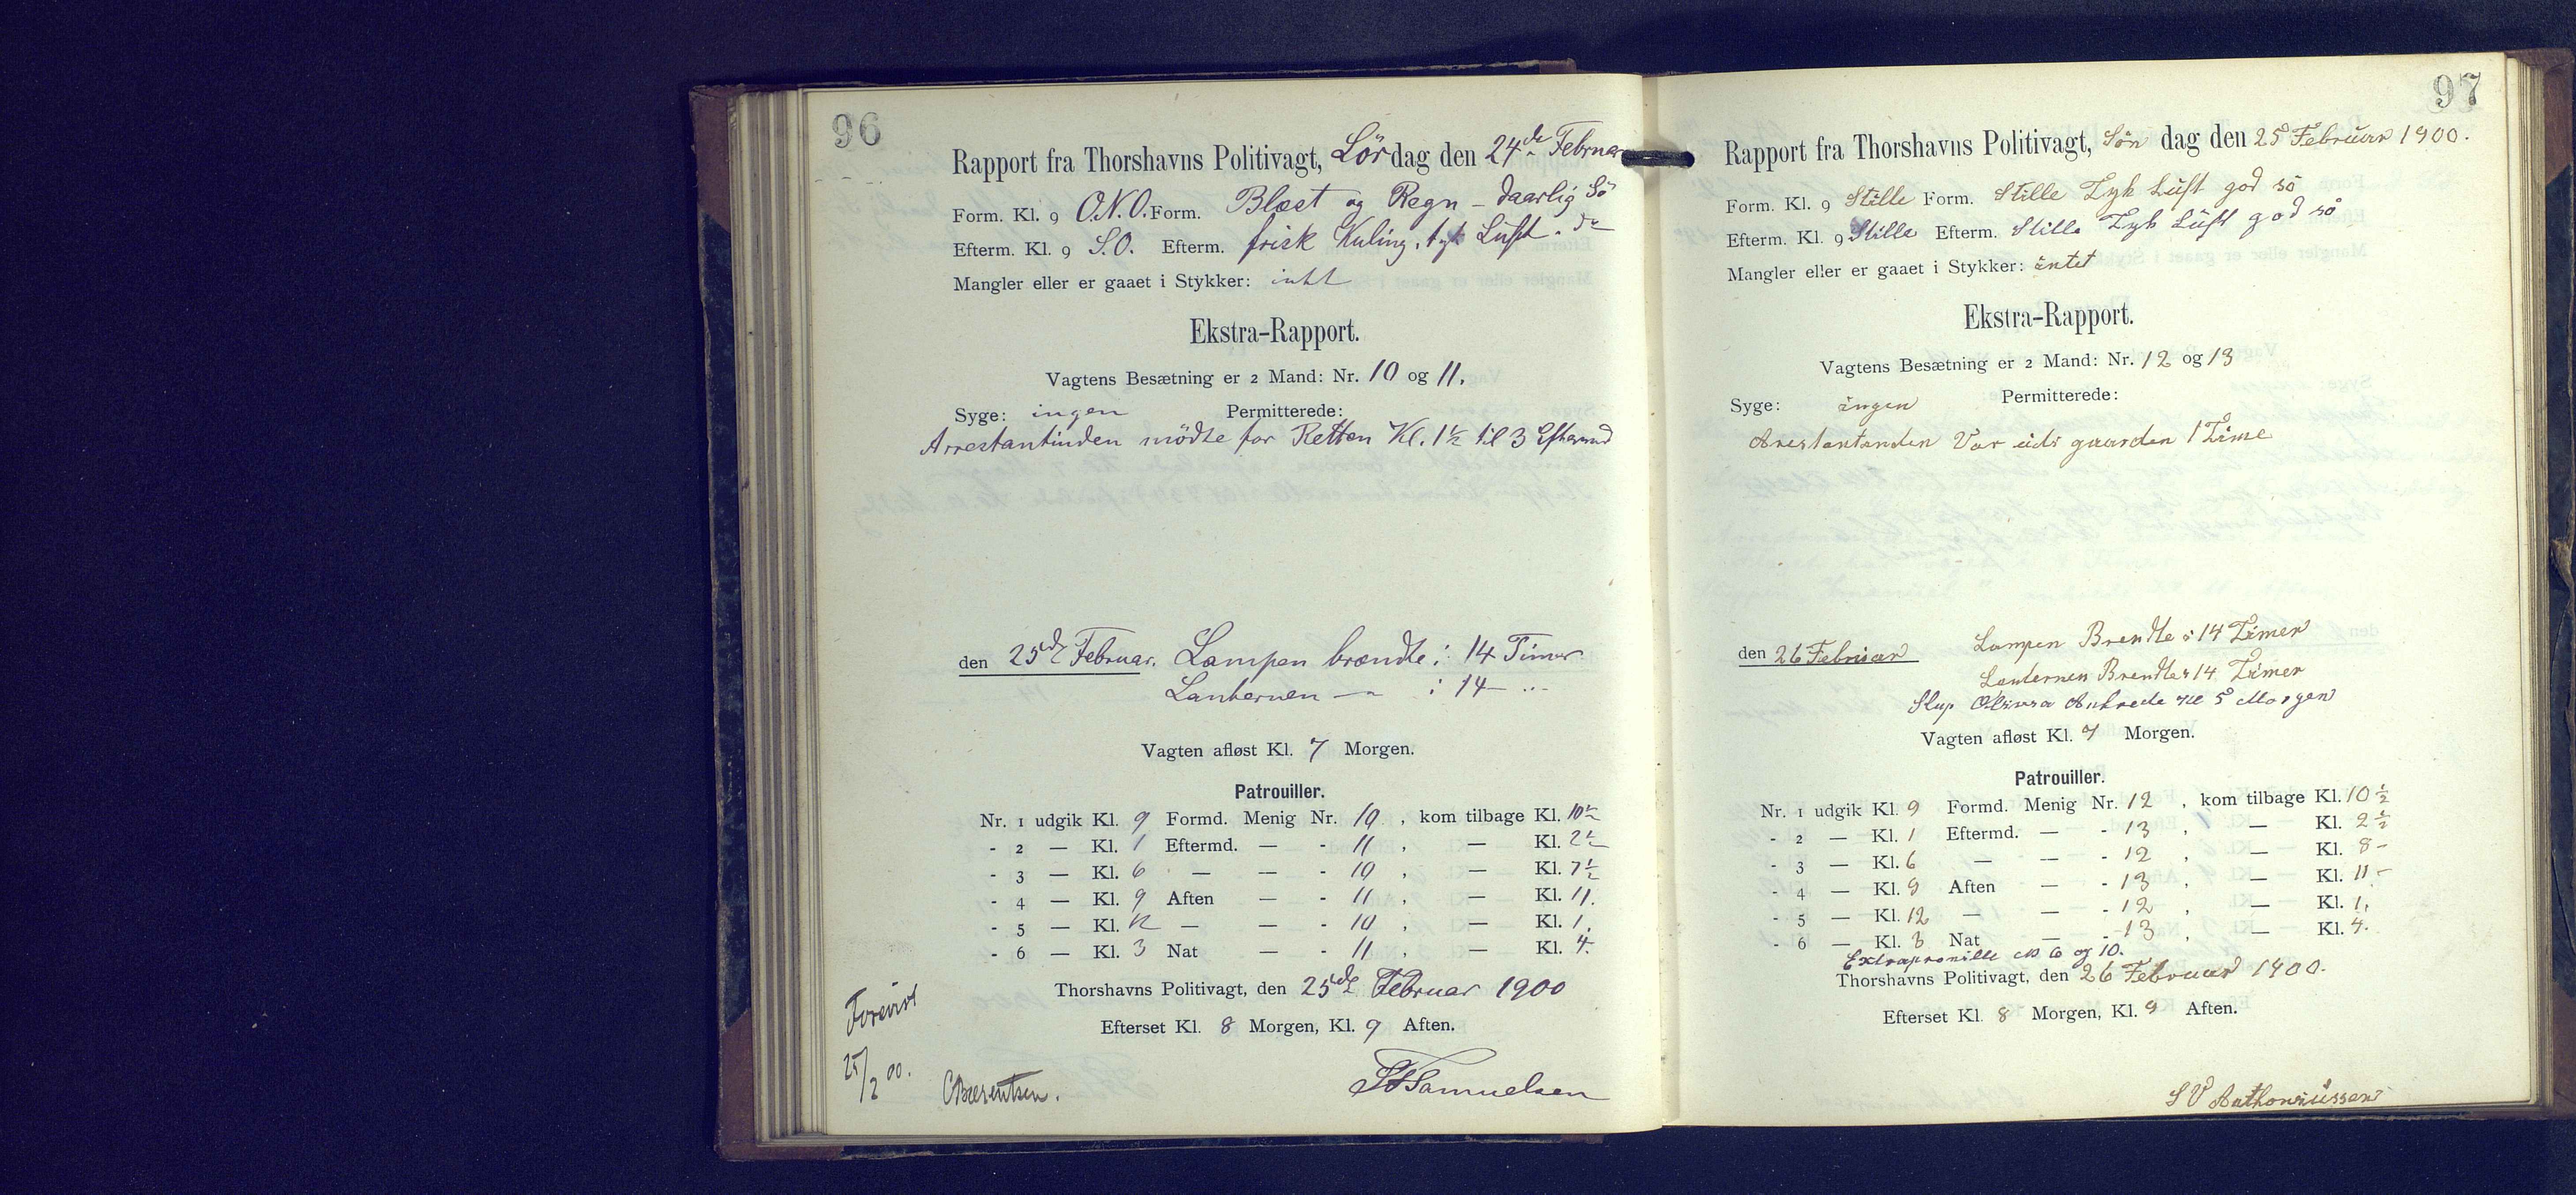 96
Rapport fra Thorshavns Politivagt, Lördag den 24de Februar
Form. Kl. 9 O.N.O. Form. Blæst og Regn - daarlig Sö
Efterm. Kl. 9 S.O. Efterm. frisk Kuling, tyk Luft. do
Mangler eller er gaaet i Stykker: intet
Ekstra-Rapport.
Vagtens Besætning er 2 Mand: Nr. 10 og 11.
Syge: ingen Permitterede:
Arrestantinden mödte for Retten Kl. 1½ til 3 Eftermd
den 25de Februar. Lampen brændte i 14 Timer
Lanternen — " i 14 — "
Vagten afløst Kl. 7 Morgen.
Patrouiller.
Nr. 1 udgik Kl. 9 Formd. Menig Nr. 10, kom tilbage Kl. 10½
- 2 — Kl. 1 Eftermd. — - 11, — Kl. 2½
- 3 — Kl. 6 — — - 10, — Kl. 7½
- 4 — Kl. 9 Aften — - 11, — Kl. 11.
- 5 — Kl. 12 — — - 10, — Kl. 1.
- 6 — Kl. 3 Nat — - 11, — Kl. 4.
Thorshavns Politivagt, den 25de Februar 1900
Efterset Kl. 8 Morgen, Kl. 9 Aften.
Forevist
25/2 00.
CBærentsen.
Samuelsen
97
Rapport fra Thorshavns Politivagt, Sön dag den 25 Februar 1900.
Form. Kl. 9 Stille Form. Stille Tyk Luft god sö
Efterm. Kl. 9 Stille Efterm. Stille Tyk Luft god sö
Mangler eller er gaaet i Stykker: intet
Ekstra-Rapport.
Vagtens Besætning er 2 Mand: Nr. 12 og 13
Syge: ingen Permitterede:
Arestantinden Var udi gaarden 1 Time
den 26 Februar Lampen Brendte i 14 Timer
Lanternen Brendte i 14 Timer
Slup Ankrede Kl 5 Morgen
Vagten afløst Kl. 7 Morgen.
Patrouiller.
Nr. 1 udgik Kl. 9 Formd. Menig Nr. 12, kom tilbage Kl. 10½
- 2 — Kl. 1 Eftermd. — - 13, — Kl. 2½
- 3 — Kl. 6 — — - 12, — Kl. 8 -
- 4 — Kl. 9 Aften — - 13, — Kl. 11 -
- 5 — Kl. 12 — — - 12, — Kl. 1.
- 6 — Kl. 3 Nat — - 13, — Kl. 4.
6 og 10.
Thorshavns Politivagt, den 26 Februar 1900.
Efterset Kl. 8 Morgen, Kl. 9 Aften.
S V Anthoniussen